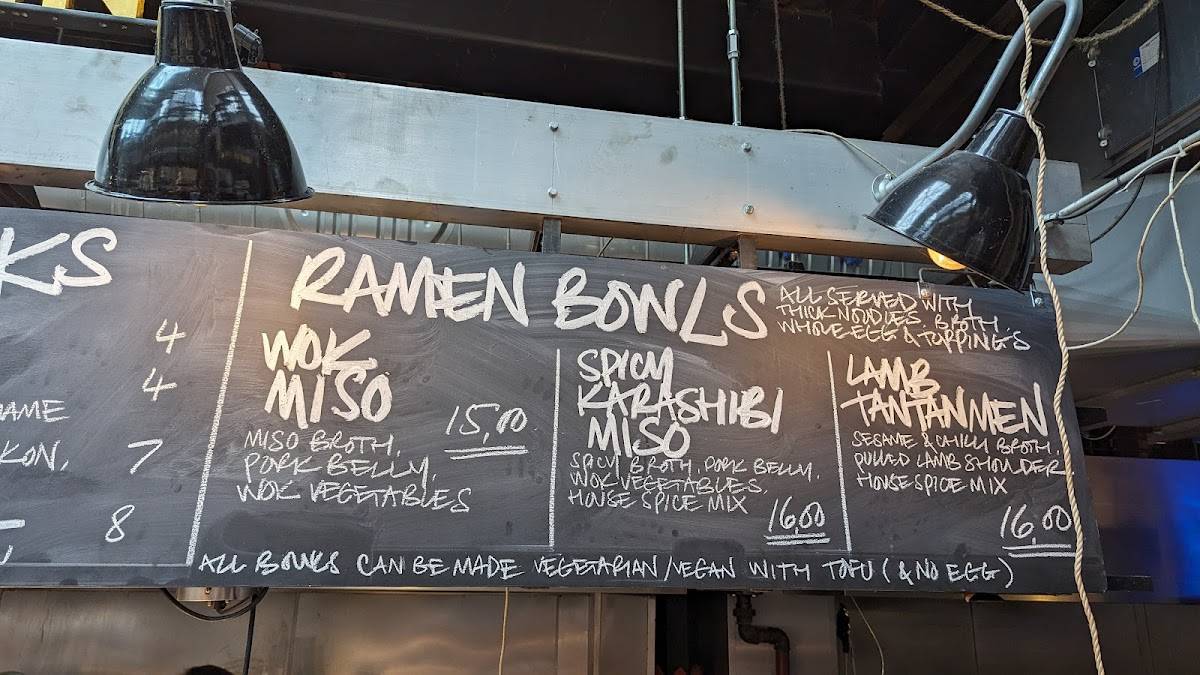 KS
4
4
AME
KON, 7
8
RAMEN BOWLS
ALL SERVED WITH
THICK NOODLES, BROTH,
WHOLE EGG & TOPPINGS
WOK
MISO
15,00
MISO BROTH,
PORK BELLY,
WOK VEGETABLES
SPICY
KARASHIBI
MISO
SPICY BROTH, PORK BELLY,
WOK VEGETABLES,
HOUSE SPICE MIX
16,00
LAMB
TANTANMEN
SESAME & CHILLY BROTH,
PULLED LAMB SHOULDER
HOUSE SPICE MIX
16,00
ALL BOWLS CAN BE MADE VEGETARIAN/VEGAN WITH TOFU (& NO EGG)